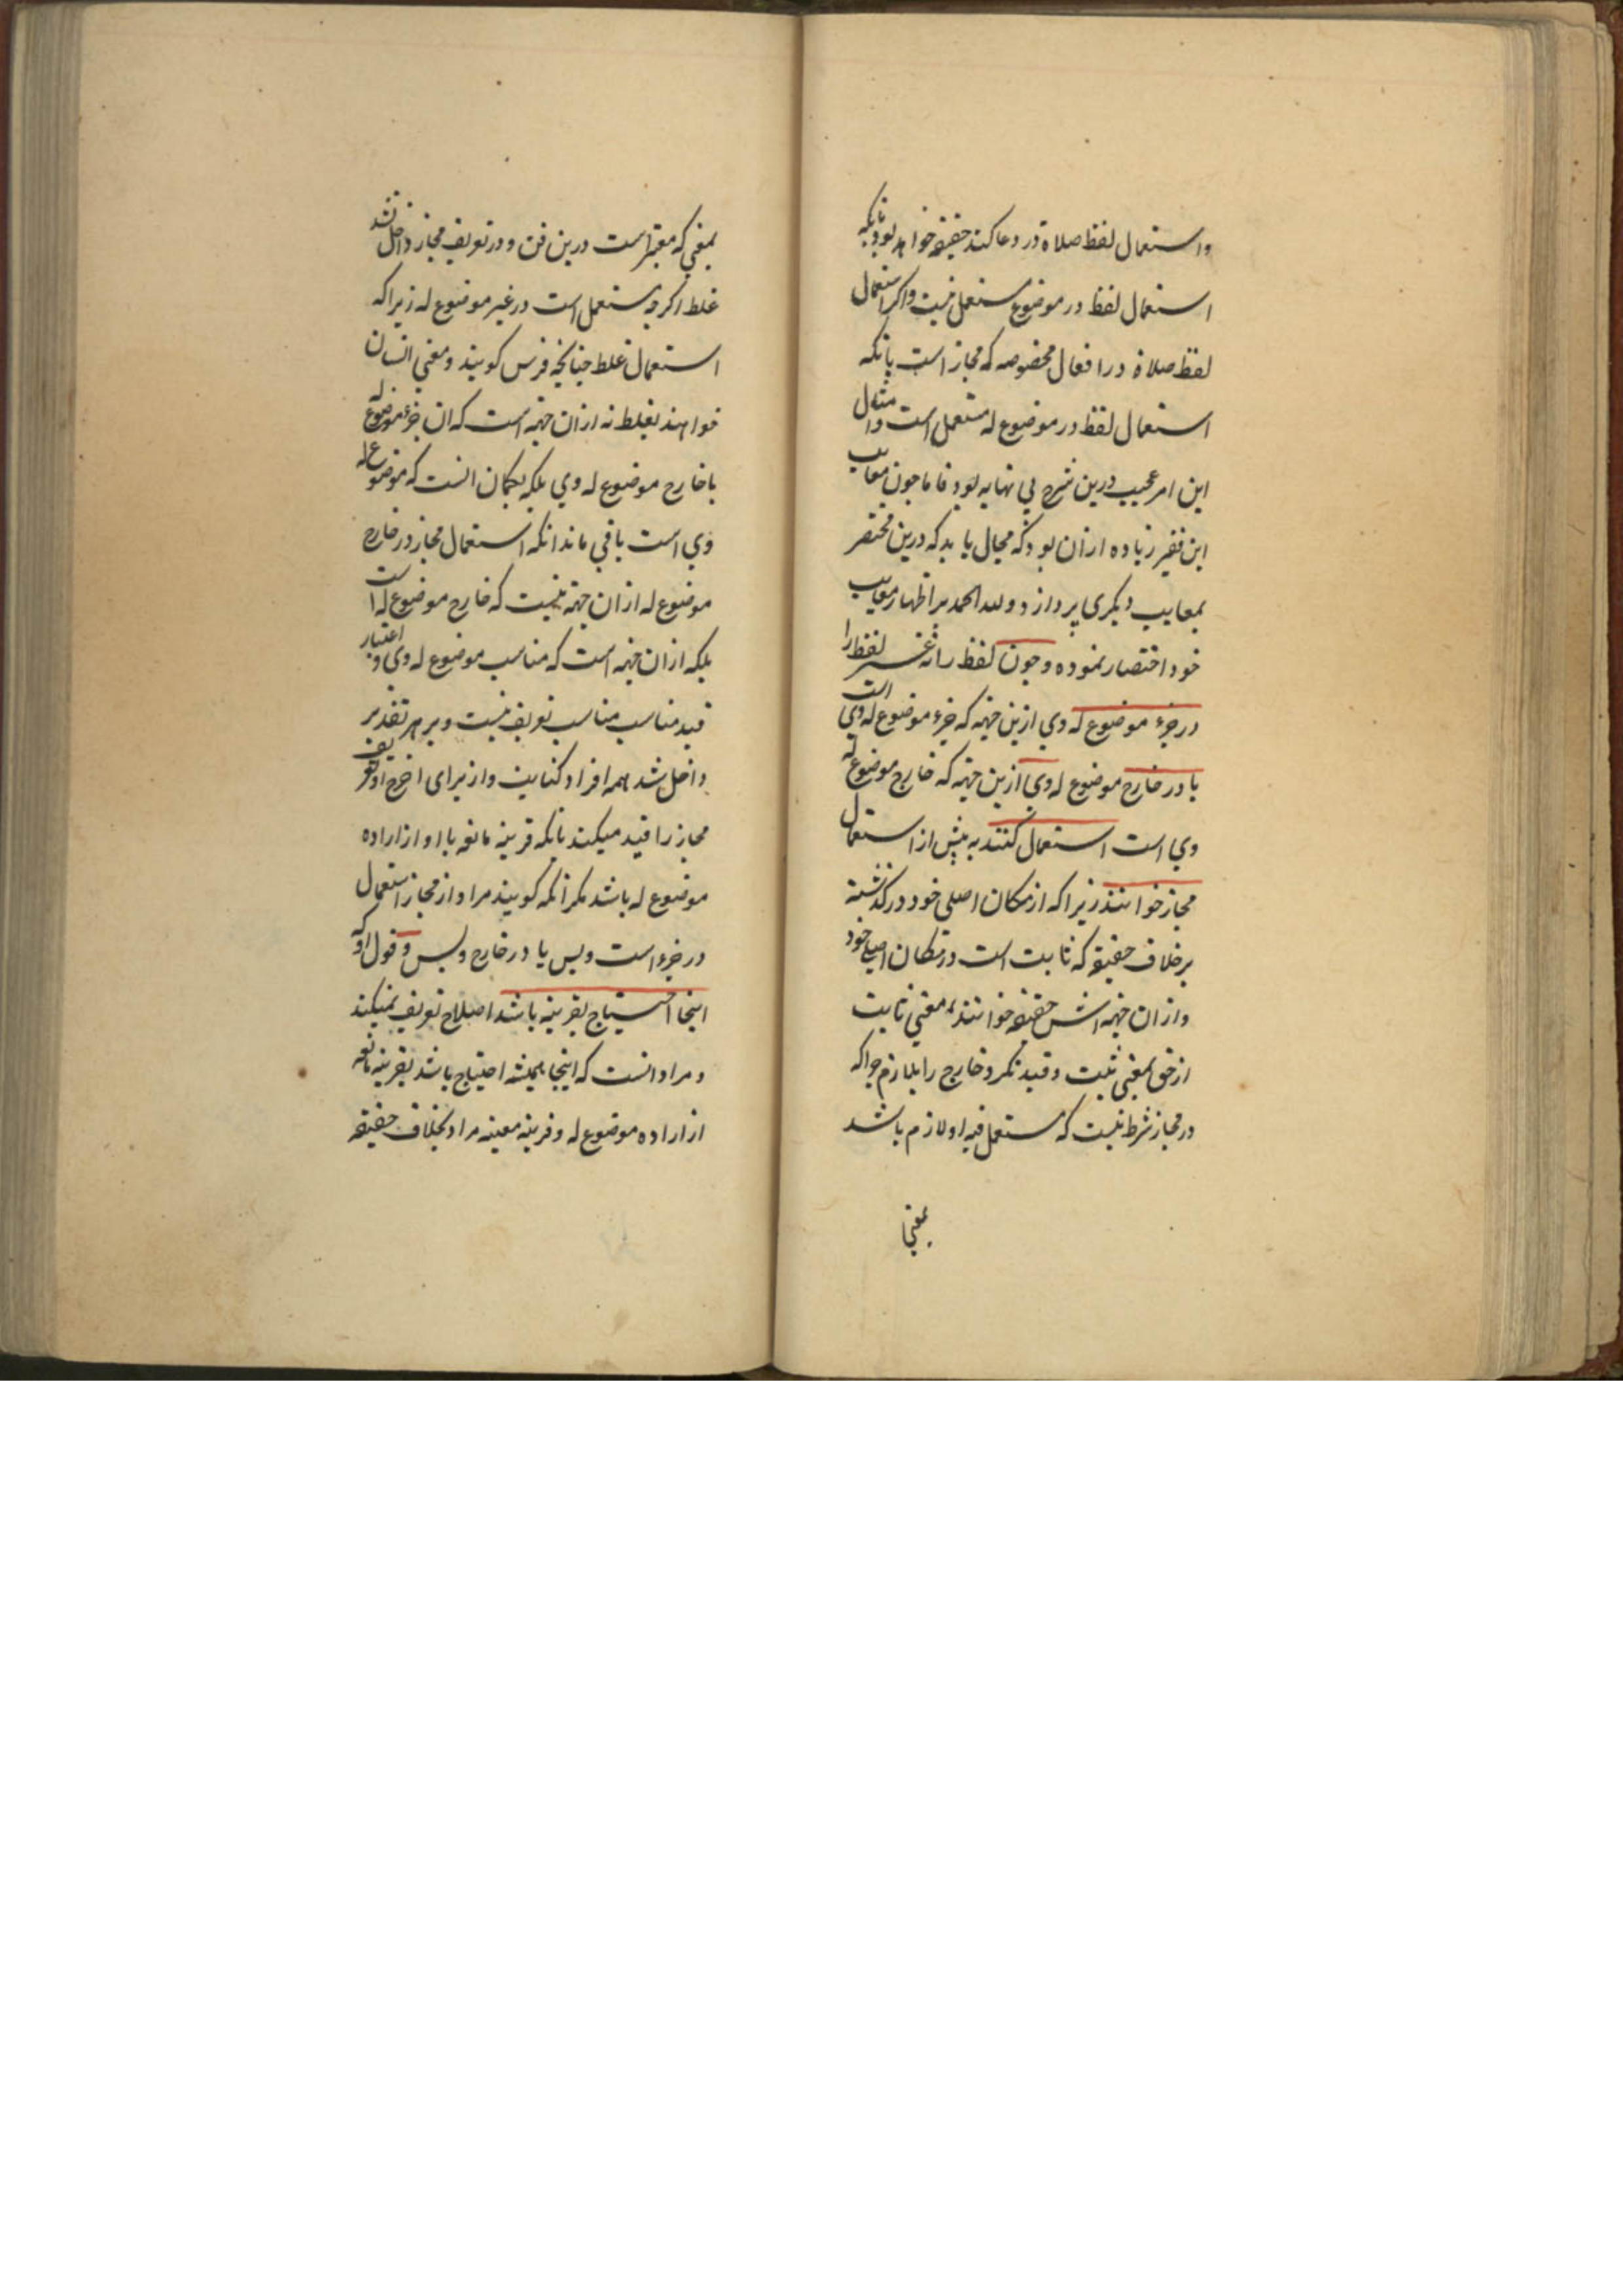 واستعمال لفظ صلاة در دعا کنند حقیقة خواهد بود بانکه
استعمال لفظ در موضوع مستعمل نیست واکر استعمال
لفظ صلاة در افعال مخصوصه که مجاز است بانکه
استعمال لفظ در موضوع له مستعمل است وامثال
این امر عجیب درین شرح بی نهایه بود فاما جون معایب
این فقیر زیاده ازان بود که مجال یابد که درین مختصر
بمعایب دیکری پردازد ولله الحمد بر اظهار معایب
خود اختصار نموده وجون لفظ را نه لفظ را
در جزء موضوع له وی ازین جهة که جزء موضوع له وی است
یا در خارج موضوع له وی ازین جهة که خارج موضوع له
وی است استعمال کنند به پیش از استعمال
مجاز خوانند زیرا که از مکان اصلی خود در کذشته
برخلاف حقیقة که ثابت است در مکان اصلی خود
وازان جهة اش حقیقة خوانند بمعنی ثابت
از حق بمعنی ثبت وقید نکرد خارج را بلازم جرا که
در مجاز شرط نیست که مستعمل فیه او لازم باشد
بمعنی
بمعنی که معتبر است درین فن ودر تعریف مجاز داخل نشد
غلط اکرجه مستعمل است در غیر موضوع له زیرا که
استعمال غلط جنانجه فرس کویند ومعنی انسان
خواهند بغلط نه ازان جهة است که ان جزء موضوع له
یا خارج موضوع له وی بلکه بکمان انست که موضوع له
وی است باقی ماند انکه استعمال مجاز در خارج
موضوع له ازان جهة نیست که خارج موضوع له است
بلکه ازان جهة است که مناسب موضوع له وی و اعتبار
قید مناسب مناسب تعریف نیست وبر هر تقدیر
داخل شد همه افراد کنایت واز برای اخرج او تعریف
مجاز را قید میکند بانکه قرینه مانعه با او از اراده
موضوع له باشد مکر انکه کویند مراد از مجاز استعمال
در جزء است وبس یا در خارج وبس وقول او که
اینجا احتیاج بقرینه باشد اصلاح تعریف نمیکند
ومراد انست که اینجا همیشه احتیاج باشد بقرینه مانعه
از اراده موضوع له وقرینه معینه مراد بخلاف حقیقة